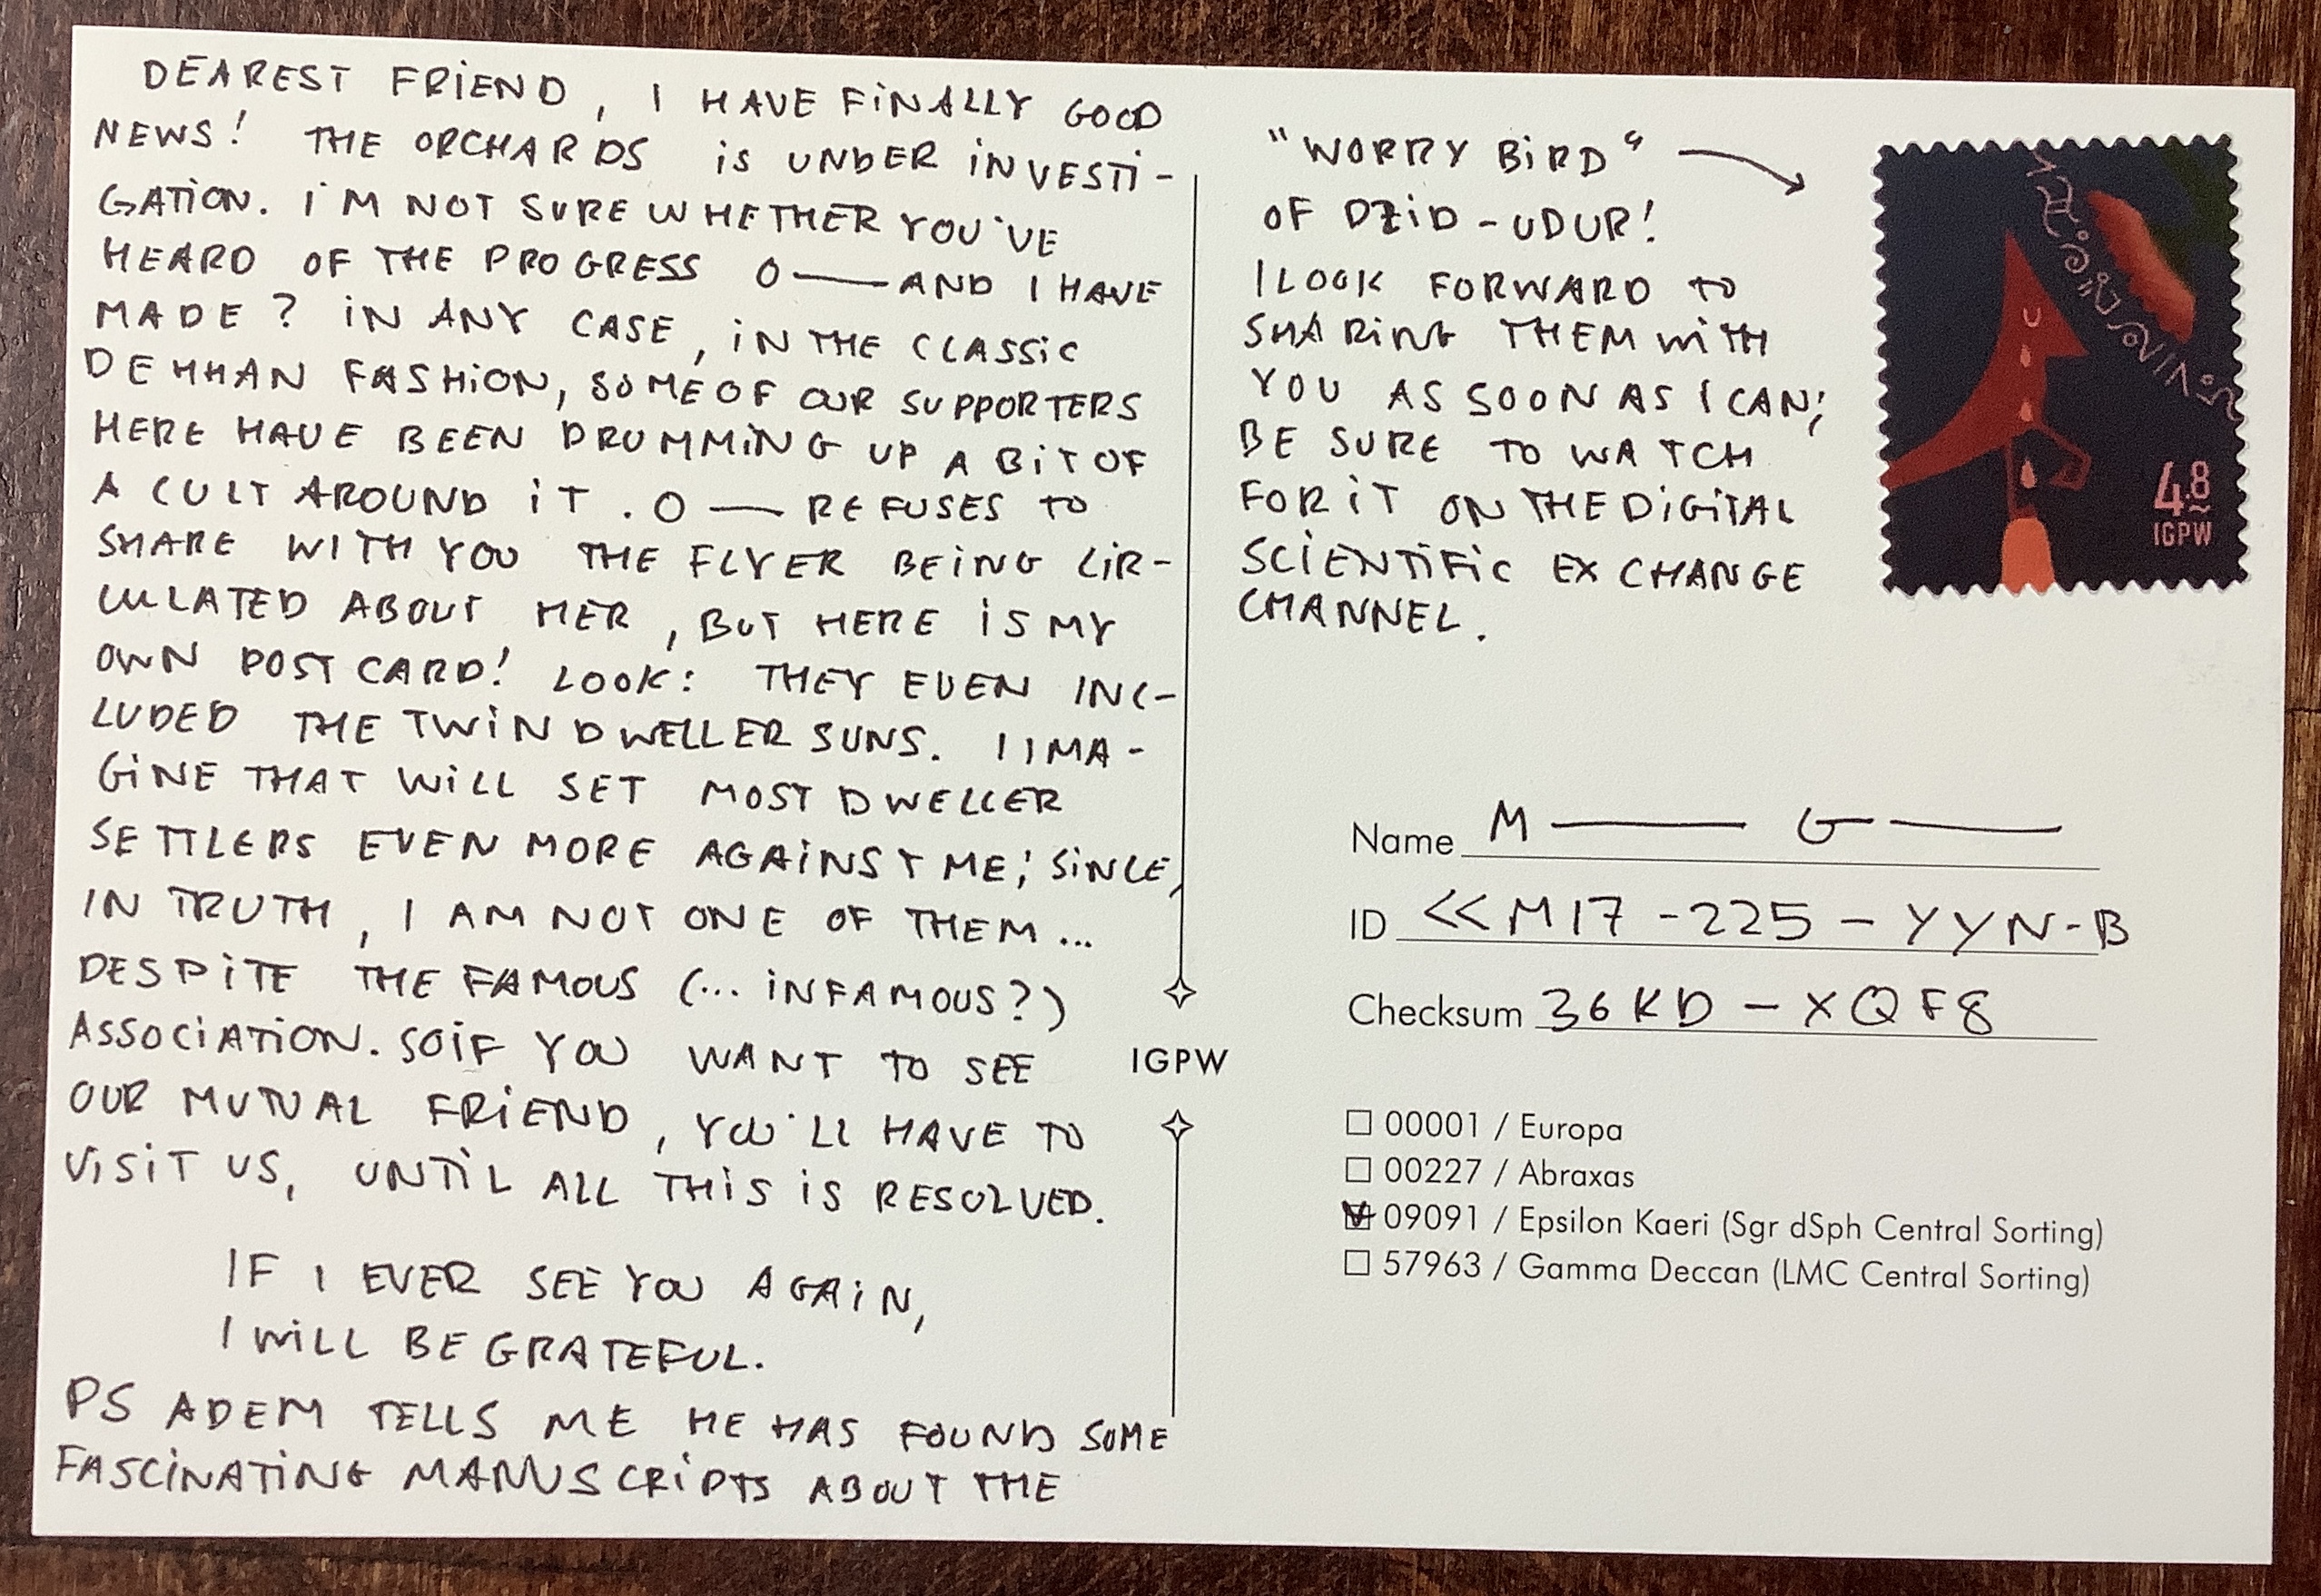 DEAREST FRIEND, I HAVE FINALLY GOOD
NEWS! THE ORCHARDS IS UNDER INVESTI-
GATION. I'M NOT SURE WHETHER YOU'VE
HEARD OF THE PROGRESS O—— AND I HAVE
MADE? IN ANY CASE, IN THE CLASSIC
DEHHAN FASHION, SOME OF OUR SUPPORTERS
HERE HAVE BEEN DRUMMING UP A BIT OF
A CULT AROUND IT. O—— REFUSES TO
SHARE WITH YOU THE FLYER BEING CIR-
CULATED ABOUT HER, BUT HERE IS MY
OWN POSTCARD! LOOK: THEY EVEN INC-
LUDED THE TWIN DWELLER SUNS. I IMA-
GINE THAT WILL SET MOST DWELLER
SETTLERS EVEN MORE AGAINST ME; SINCE,
IN TRUTH, I AM NOT ONE OF THEM...
DESPITE THE FAMOUS (... INFAMOUS?)
ASSOCIATION. SO IF YOU WANT TO SEE
OUR MUTUAL FRIEND, YOU'LL HAVE TO
VISIT US, UNTIL ALL THIS IS RESOLVED.
IF I EVER SEE YOU AGAIN,
I WILL BE GRATEFUL.
PS ADEM TELLS ME HE HAS FOUND SOME
FASCINATING MANUSCRIPTS ABOUT THE
"WORRY BIRD"
OF DZID-UDUR!
I LOOK FORWARD TO
SHARING THEM WITH
YOU AS SOON AS I CAN;
BE SURE TO WATCH
FOR IT ON THE DIGITAL
SCIENTIFIC EXCHANGE
CHANNEL.
4.8
IGPW
Name M—— G——
ID <<M17-225-YYN-B
Checksum 36KD-XQF8
IGPW
00001 / Europa
00227 / Abraxas
09091 / Epsilon Kaeri (Sgr dSph Central Sorting)
57963 / Gamma Deccan (LMC Central Sorting)